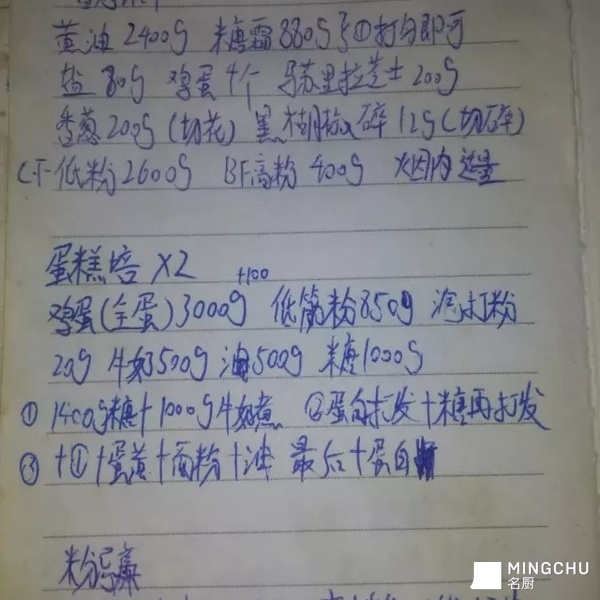 黄油 2400g 糖霜 880g ①打匀即可
盐 80g 鸡蛋 4个 马苏里拉芝士 200g
香葱 200g (切花) 黑胡椒碎 12g (切碎)
CF低粉 2600g BF高粉 400g 烟肉 适量
蛋糕培 X2
+100
鸡蛋(全蛋) 3000g 低筋粉 850g 泡打粉
20g 牛奶 500g 油 500g 糖 1000g
① 1400g糖+1000g牛奶煮 ②蛋白打发+糖再打发
③ +①+蛋黄+面粉+油 最后+蛋白
MINGCHU
名厨